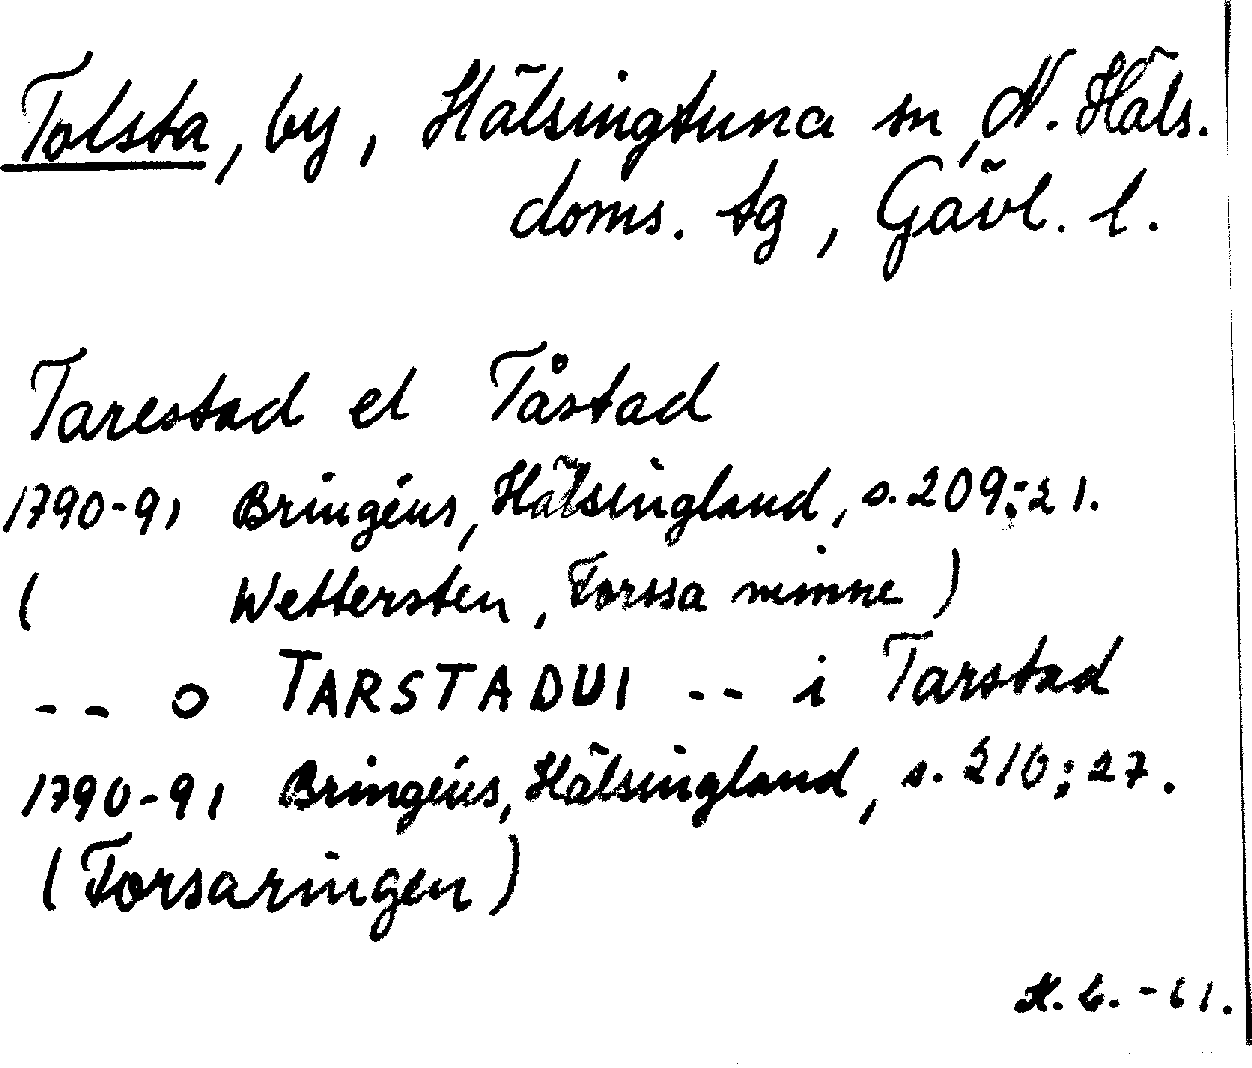 Tolsta, by, Hälsingtuna sn, N. Häls.
doms. tg, Gävl. l.
Tarestad el Tåstad
1790-91 Bringéus, Hälsingland, s. 209:21.
( Wettersten, Forssa minne )
-- o TARSTADUI -- i Tarstad
1790-91 Bringéus, Hälsingland, s. 210:27.
(Forsaringen)
-61.